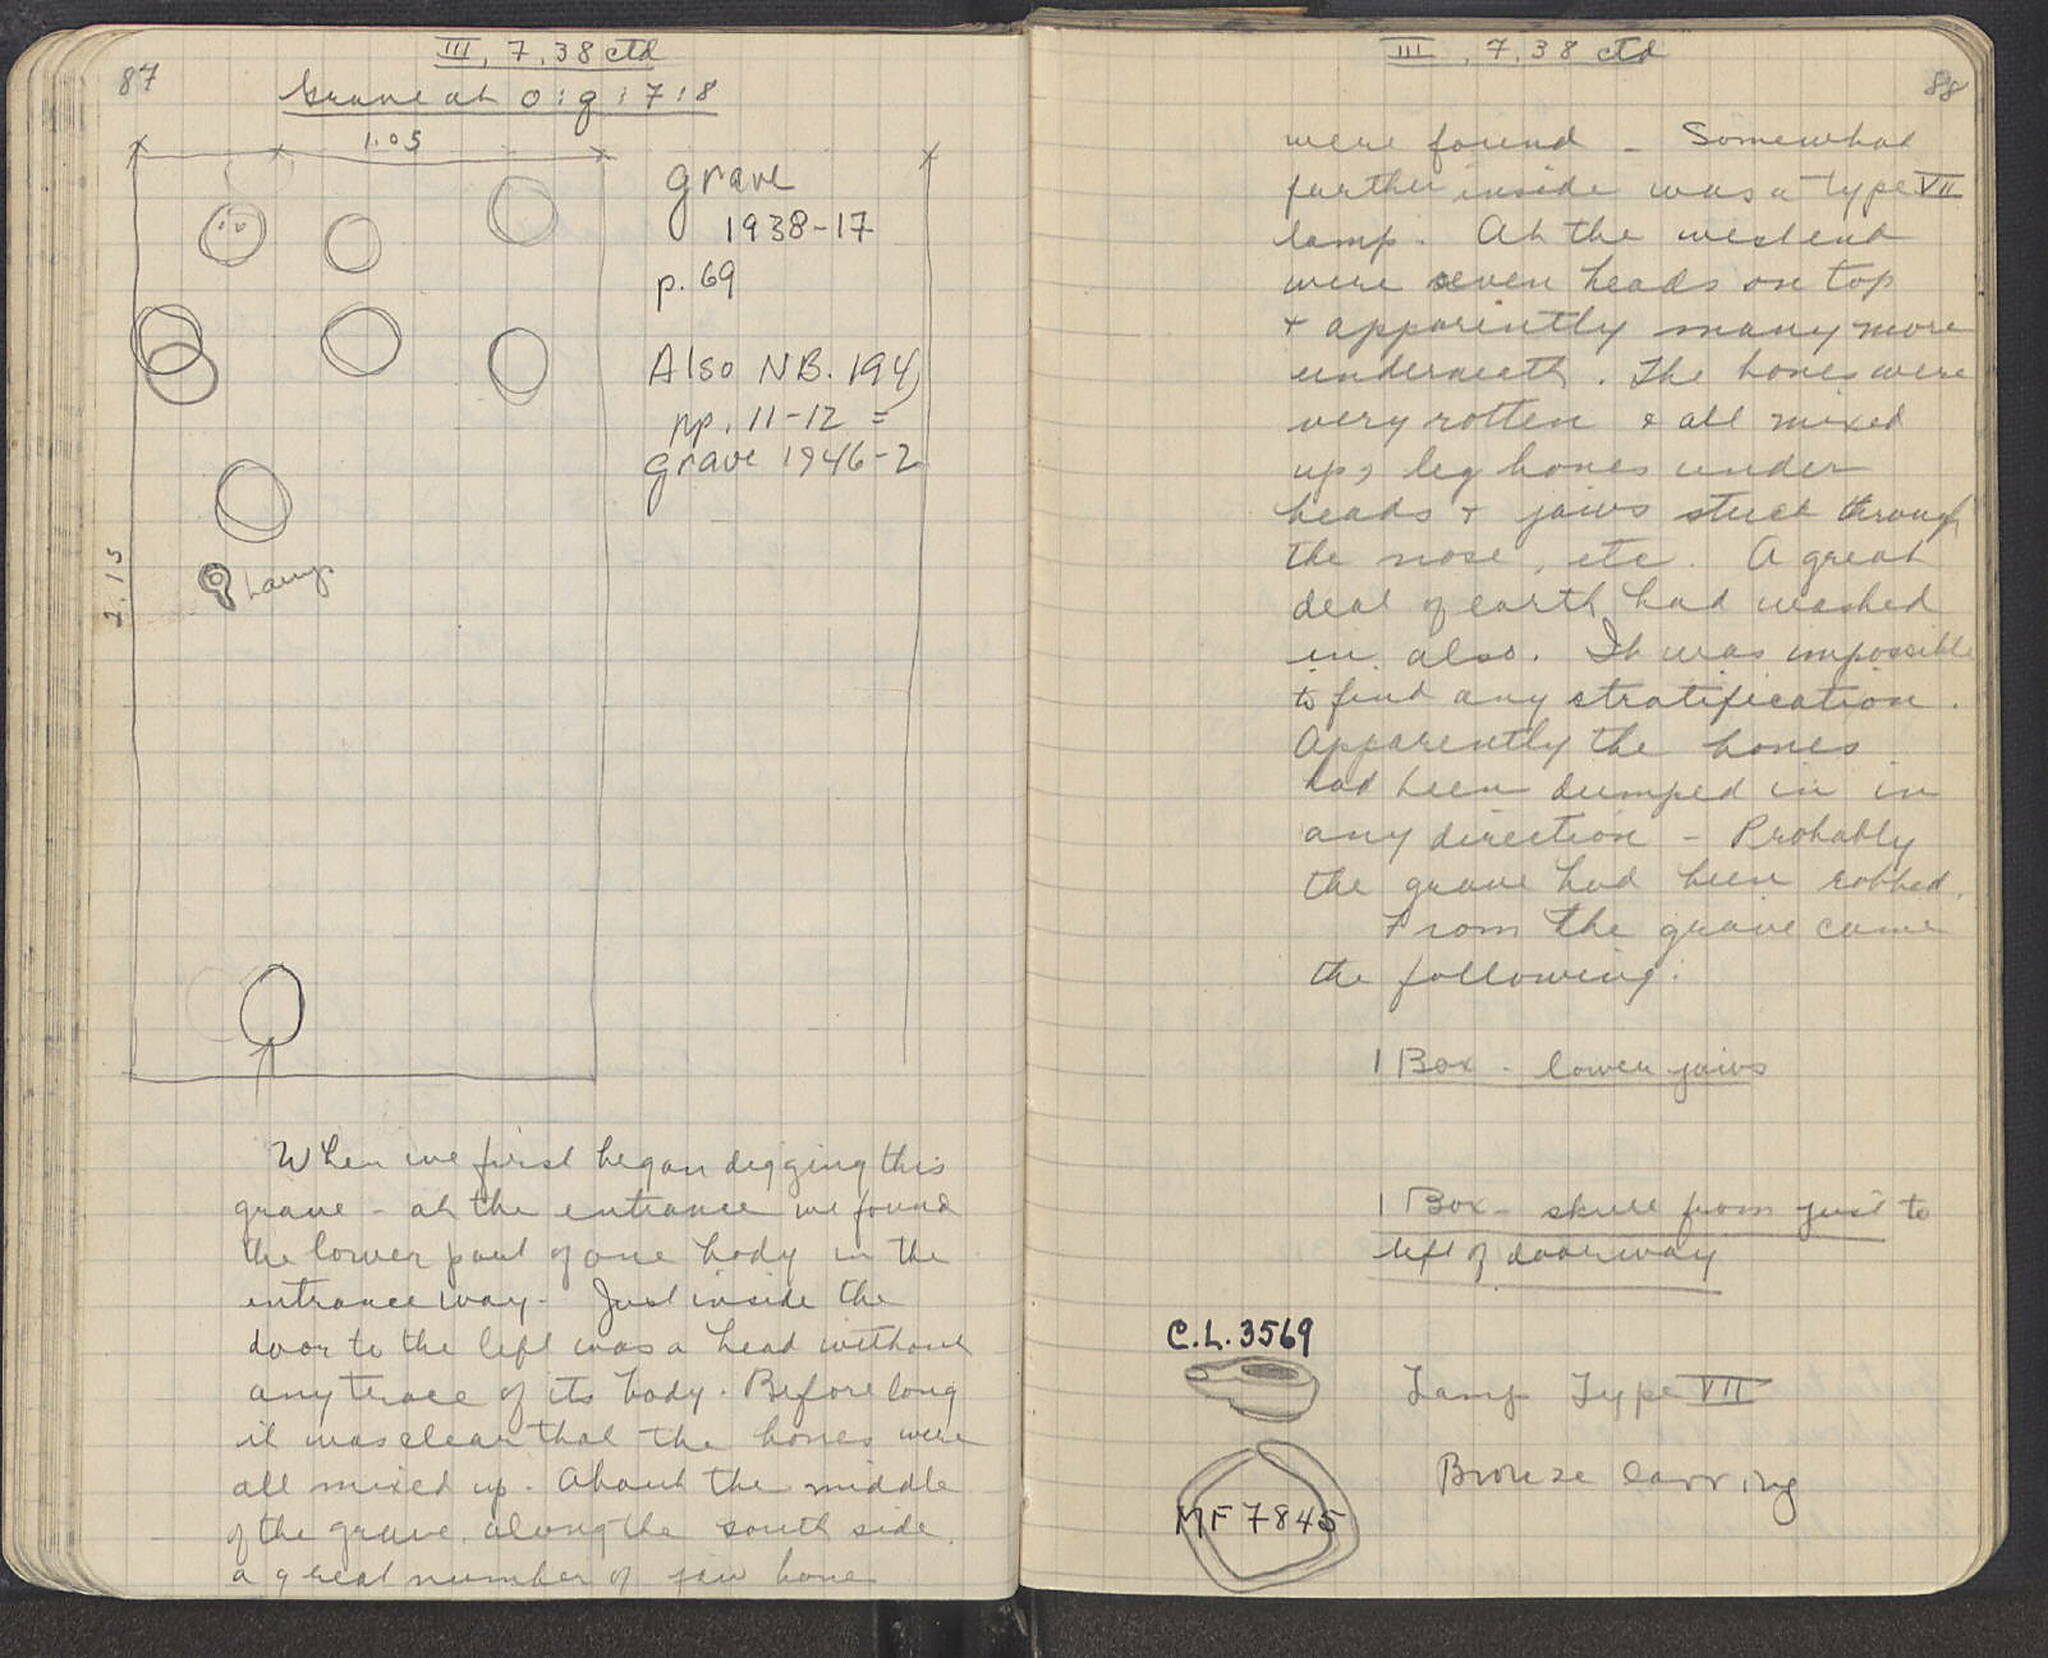 87
III, 7.38 ctd
Grave at O:g:7:8
1.05
grave
1938-17
p. 69
Also NB. 194,
pp. 11-12 =
grave 1946-2
2.15
Lamp
When we first began digging this
grave - at the entrance we found
the lower part of one body in the
entranceway - Just inside the
door to the left was a head without
any trace of its body. Before long
it was clear that the bones were
all mixed up. About the middle
of the grave, along the south side,
a great number of jaw bone
III, 7.38 ctd
88
were found - Somewhat
further inside was a type VII
lamp. At the west end
were seven heads on top
+ apparently many more
underneath. The bones were
very rotten & all mixed
up, leg bones under
heads + jaws stuck through
the nose, etc. A great
deal of earth had washed
in also. It was impossible
to find any stratification.
Apparently the bones
had been dumped in in
any direction - Probably
the grave had been robbed.
From the grave came
the following:
1 Box - lower jaws
1 Box - skull from just to
left of doorway
C.L. 3569
Lamp Type VII
Bronze earring
MF 7845